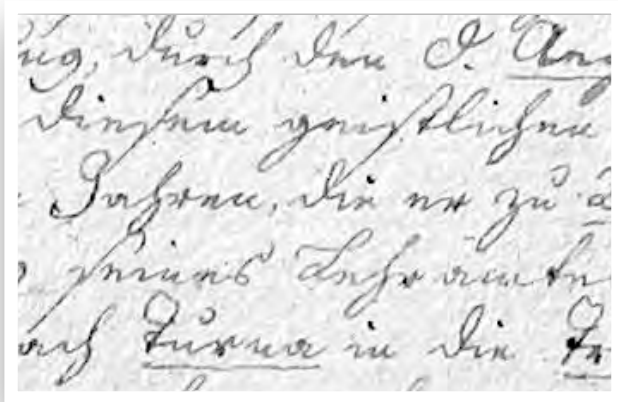 durch den P.
diesem geistlichen
Jahren, die er zu
seines Lehramte
nach Turna in die